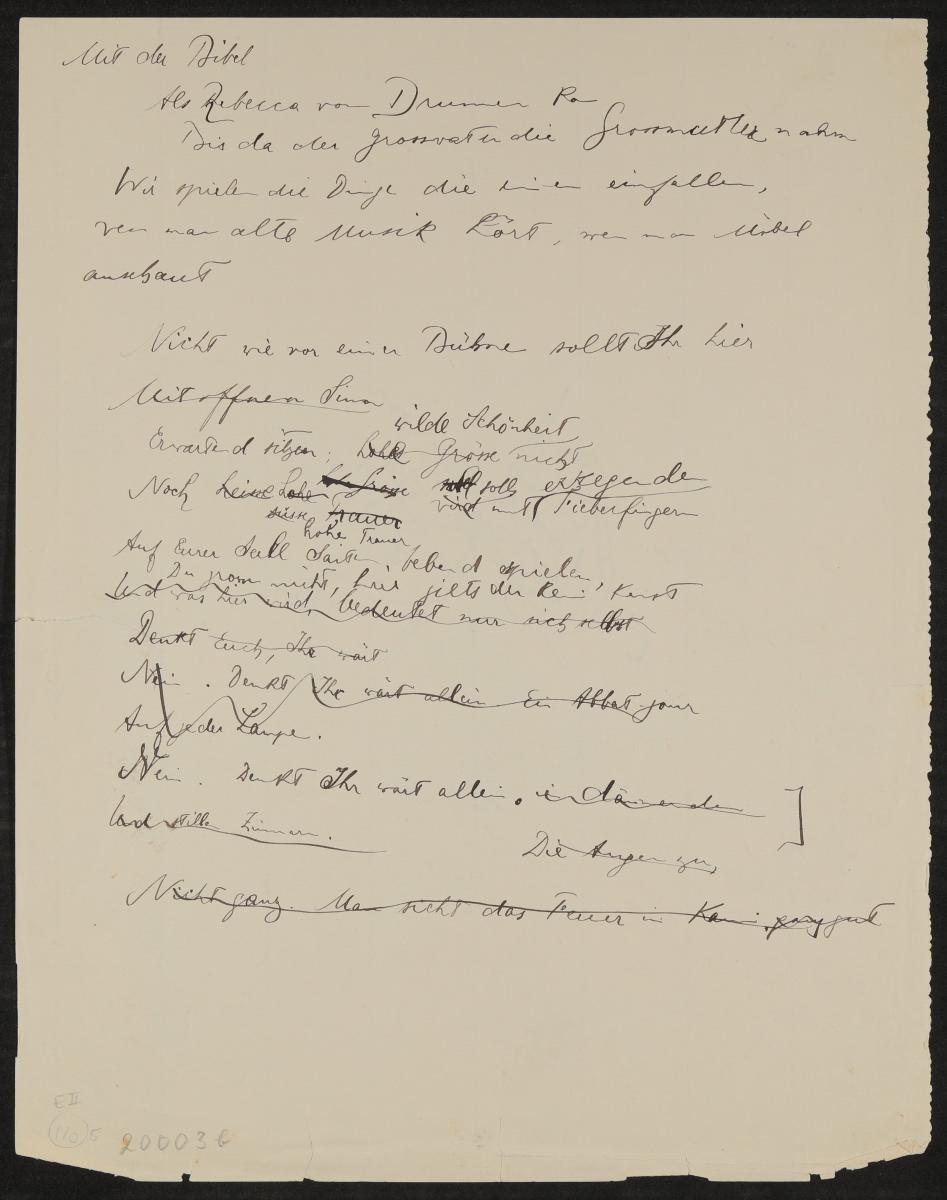 Mit der Bibel
Als Rebecca vom Brunnen kam
Bis da der Grossvater die Grossmutter nahm
Wir spielen die Dinge die einen einfallen,
wen man alte Musik hört, wen man Möbel
anschaut
Nicht wie vor einer Bühne sollt Ihr hier
Mit offnen Sinn
wilde Schönheit
Erwartend sitzen: hohe Grösse nicht
Noch keine hohe soll erregender
süsse Trauer wird mit Fieberfingern
hohe Trauer
Auf Eurer Saiten, bebend spielen,
nicht, hier gilts der Kunst
Und was hier wird, bedeutet nur sich selbst
Denkt Euch, Ihr wärt
Nein. Denkt Ihr wärt allein Ein Abbat-jour
Auf jeder Lampe.
Nein. Denkt Ihr wärt allein. in dämernden
Und stillen Zimmern.
Die Augen zu,
Nicht ganz. Man sieht das Feuer im Kamin ganz gut
E II
110 5
200036